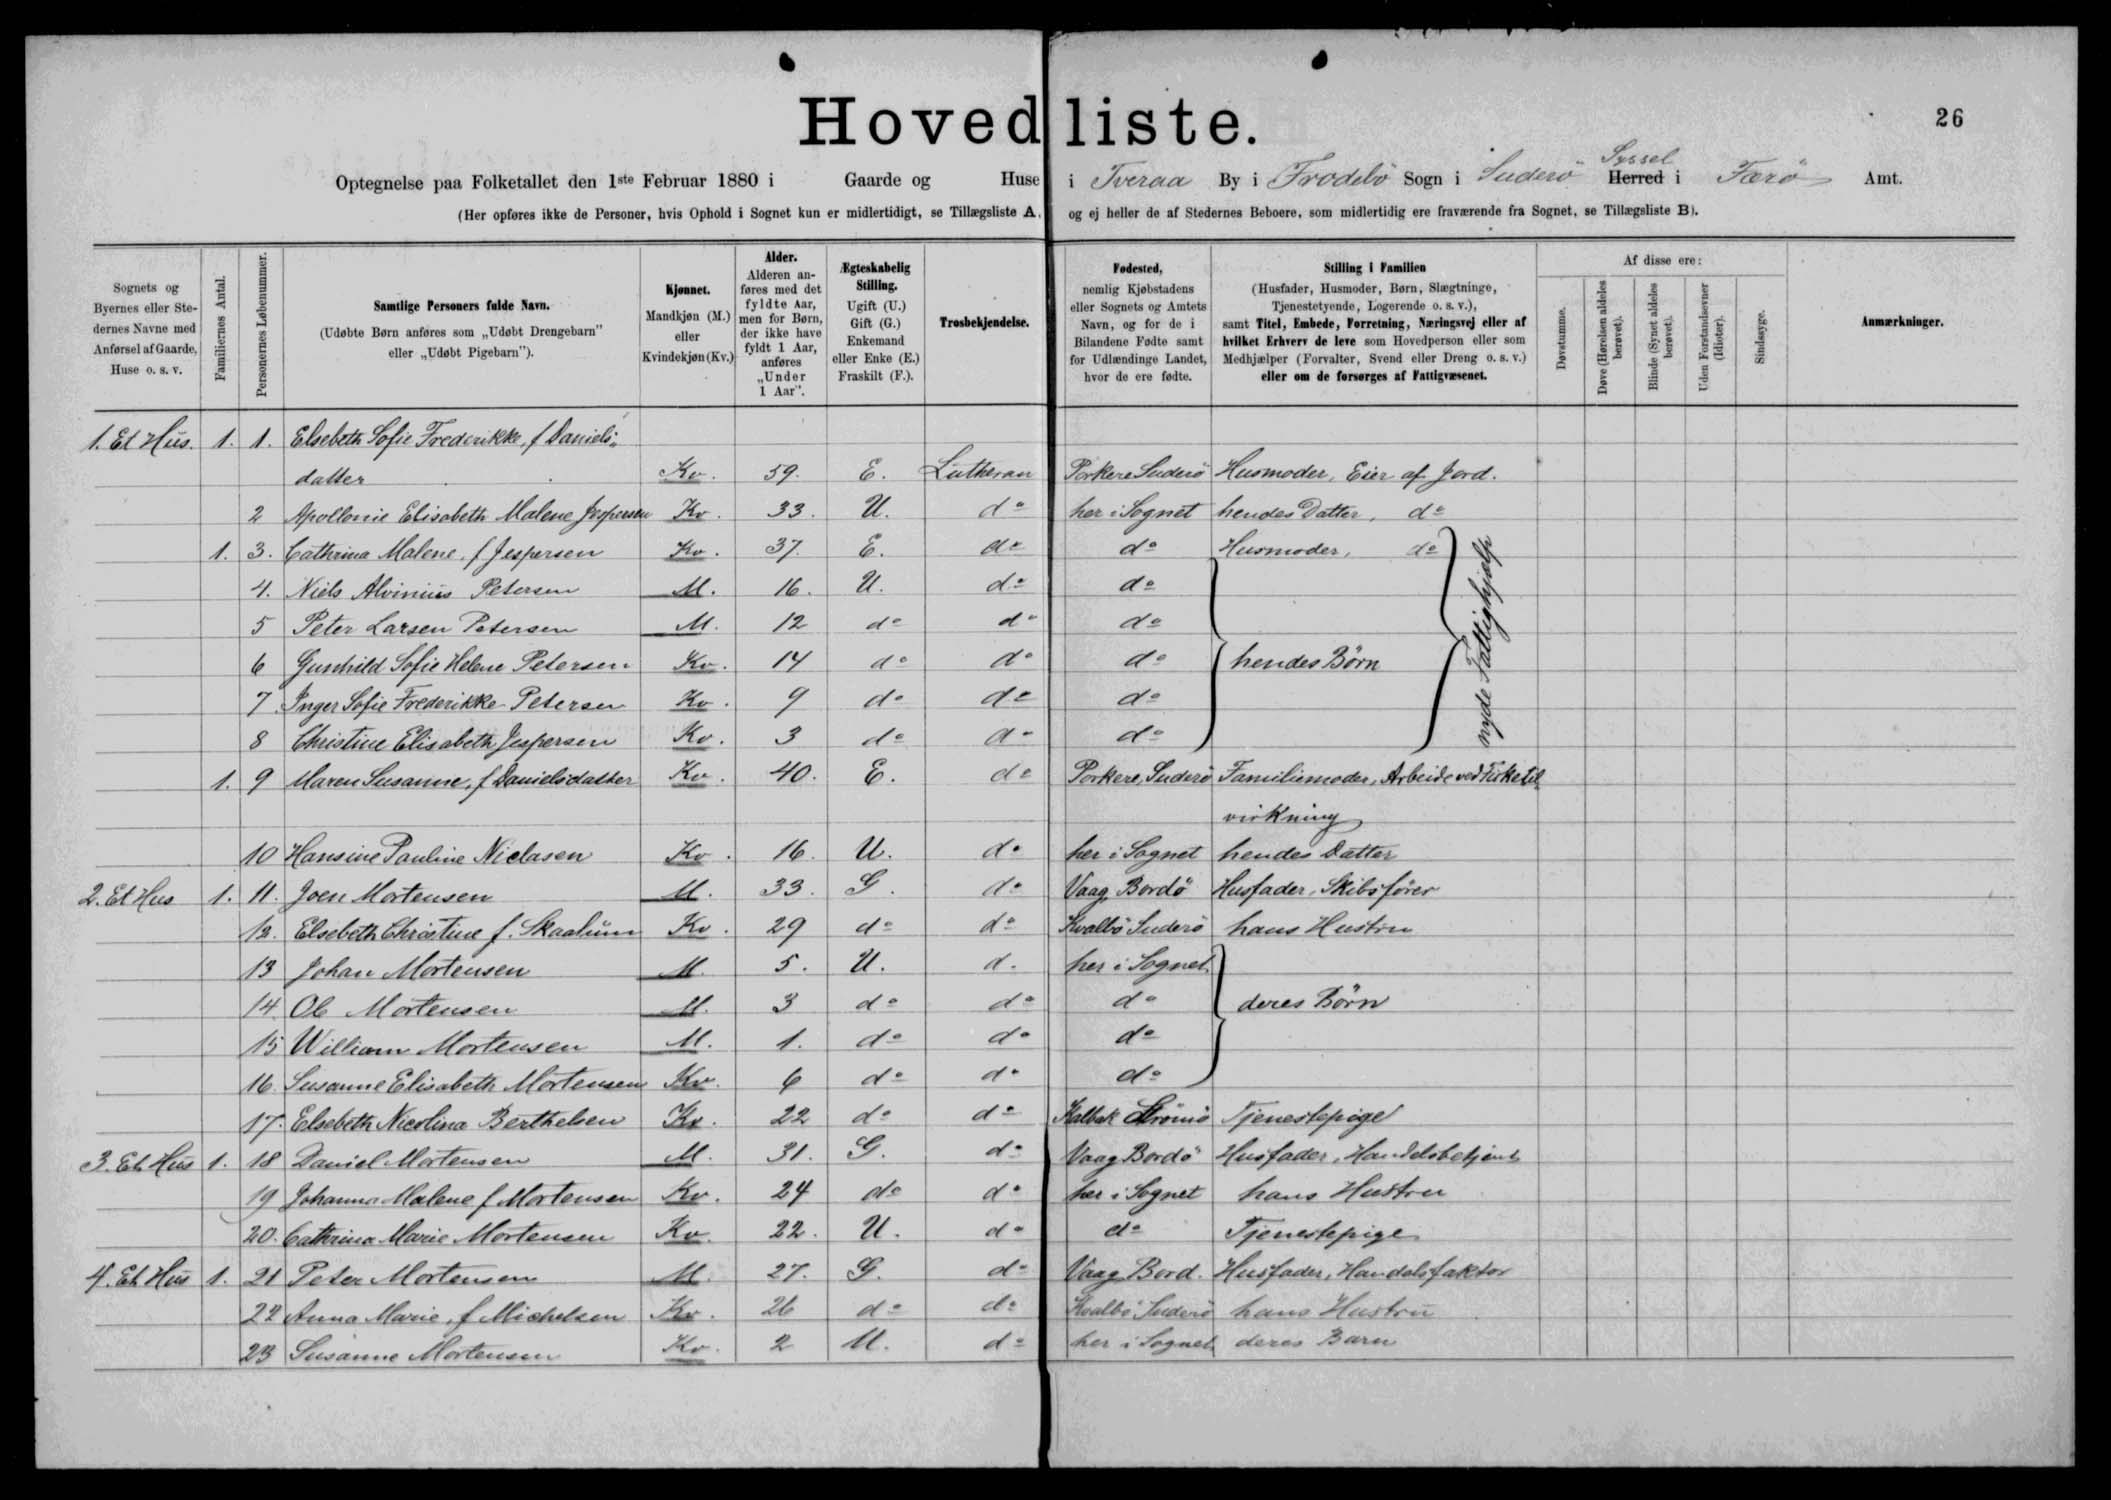 Hovedliste.
26
Optegnelse paa Folketallet den 1ste Februar 1880 i Gaarde og Huse i Tveraa By i Frodebö Sogn i Suderö Syssel Herred i Færö Amt.
(Her opføres ikke de Personer, hvis Ophold i Sognet kun er midlertidigt, se Tillægsliste A, og ej heller de af Stedernes Beboere, som midlertidig ere fraværende fra Sognet, se Tillægsliste B).
Sognets og Byernes eller Stedernes Navne med Anførsel af Gaarde, Huse o. s. v.
Familiernes Antal.
Personernes Løbenummer.
Samtlige Personers fulde Navn.
(Udøbte Børn anføres som „Udøbt Drengebarn" eller „Udøbt Pigebarn").
Kjønnet.
Mandkjøn (M.) eller Kvindekjøn (Kv.)
Alder.
Alderen anføres med det fyldte Aar, men for Børn, der ikke have fyldt 1 Aar, anføres „Under 1 Aar".
Ægteskabelig Stilling.
Ugift (U.) Gift (G.) Enkemand eller Enke (E.) Fraskilt (F.).
Trosbekjendelse.
Fødested,
nemlig Kjøbstadens eller Sognets og Amtets Navn, og for de i Bilandene Fødte samt for Udlændinge Landet, hvor de ere fødte.
Stilling i Familien
(Husfader, Husmoder, Børn, Slægtninge, Tjenestetyende, Logerende o. s. v.), samt Titel, Embede, Forretning, Næringsvej eller af hvilket Erhverv de leve som Hovedperson eller som Medhjælper (Forvalter, Svend eller Dreng o. s. v.) eller om de forsørges af Fattigvæsenet.
Af disse ere:
Døvstumme.
Døve (Hørelsen aldeles berøvet).
Blinde (Synet aldeles berøvet).
Uden Forstandsevner (Idioter).
Sindssyge.
Anmærkninger.
1. Et Hus. 1. 1. Elsebeth Sofie Frederikke, f Daniels-
datter Kv. 59. E. Lutheran Porkere Suderö Husmoder, Eier af Jord.
2 Apollonie Elisabeth Malene Jespersen Kv. 33. U. do her i Sognet hendes Datter, do
1. 3. Cathrina Malene, f Jespersen Kv. 37. E. do do Husmoder, do
4. Niels Alvinius Petersen M. 16. U. do do
5 Peter Larsen Petersen M. 12 do do do
6 Gunhild Sofie Helene Petersen Kv. 14 do do do hendes Börn
7 Inger Sofie Frederikke Petersen Kv. 9 do do do
8 Christine Elisabeth Jespersen Kv. 3 do do do
nyde Fattighjælp
1. 9 Maren Susanne, f Danielsdatter Kv. 40. E. do Porkere, Suderö Familiemoder, Arbeide ved Fisketil
virkning
10 Hansine Pauline Niclasen Kv. 16. U. do her i Sognet hendes Datter
2. Et Hus 1. 11. Joen Mortensen M. 33. G. do Vaag Bordö Husfader, Skibsfører
12. Elsebeth Christine f. Skaalum Kv. 29 do do Kvalbö Suderö hans Hustru
13 Johan Mortensen M. 5. U. d. her i Sognet
14. Ole Mortensen M. 3 do do do deres Börn
15 William Mortensen M. 1. do do do
16. Susanne Elisabeth Mortensen Kv. 6 do do do
17. Elsebeth Nicolina Berthelsen Kv. 22 do do Kalbak Strömö Tjenestepige
3. Et Hus 1. 18 Daniel Mortensen M. 31. G. do Vaag Bordö Husfader, Handelsbetjent
19 Johanna Malene f Mortensen Kv. 24 do do her i Sognet hans Hustru
20. Cathrina Marie Mortensen Kv. 22. U. do do Tjenestepige
4. Et Hus 1. 21 Peter Mortensen M. 27. G. do Vaag Bord. Husfader, Handelsfaktor
22 Anna Marie, f Michelsen Kv. 26 do do Kvalbö, Suderö hans Hustru
23 Susanne Mortensen Kv. 2 U. do her i Sognet deres Barn